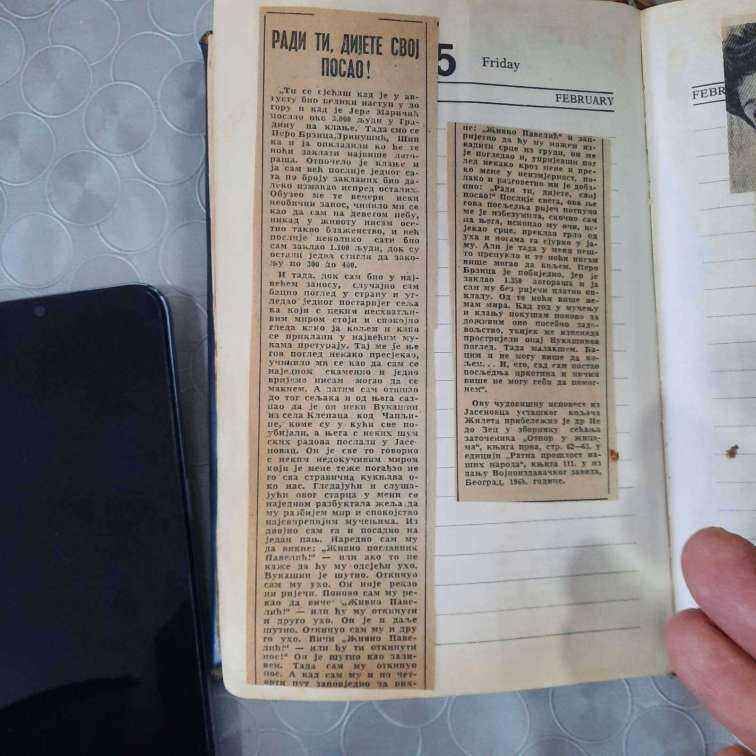 РАДИ ТИ, ДИЈЕТЕ СВОЈ
ПОСАО!
„Ти се сјећаш кад је у ав-
густу био велики наступ у ло
гору и кад је Јере Маричић
послао око 3.000 људи у Гра-
дину на клање. Тада смо се
Перо Брзица, Зринушић, Шип
ка и ја опкладили ко ће те
ноћи заклати највише лого-
раша. Отпочело је клање и
ја сам већ послије једног са-
та по броју закланих био да-
леко измакао испред осталих.
Обузео ме те вечери неки
необични занос, чинило ми се
као да сам на деветом небу,
никад у животу нисам осе-
тио такво блаженство, и већ
послије неколико сати био
сам заклао 1.100 људи, док су
остали једва стигли да зако-
љу по 300 до 400.
И тада, док сам био у нај-
већем заносу, случајно сам
бацио поглед у страну и уг-
ледао једног постаријег сеља
ка који с неким несхватљи-
вим миром стоји и спокојно
гледа како ја кољем и како
се приклани у највећим му-
кама претурају. Тај ме је ње
гов поглед некако пресјекао,
учинило ми се као да сам се
наједном скаменио и једно
вријеме нисам могао да се
макнем. А затим сам отишо
до тог сељака и од њега саз-
нао да је он неки Вукашин
из села Клепаца код Чапљи-
не, коме су у кући све по-
убијали, а њега с неких шум
ских радова послали у Јасе-
новац. Он је све то говорио
с неким недокучивим миром
који је мене теже погађао не
го сва стравична кукњава о-
ко нас. Гледајући и слуша-
јући овог старца у мени се
наједном разбуктала жеља да
му разбијем мир и спокојство
најсвирепијим мучењима. Из
двојио сам га и посадио на
један пањ. Наредио сам му
да викне: „Живио поглавник
Павелић!“ — или ако то не
каже да ћу му одсјећи ухо.
Вукашин је шутио. Откинуо
сам му ухо. Он није рекао
ни ријечи. Поново сам му ре-
као да виче „Живио Паве-
лић!“ — или ћу му откинути
и друго ухо. Он је и даље
шутио. Откинуо сам му и дру
го ухо. Вичи „Живио Паве-
лић!“ — или ћу ти откинути
нос!“ Он је шутио као зали-
вен. Тада сам му откинуо
нос. А кад сам му и по чет-
врти пут заповједио да вик-
5
Friday
FEBRUARY
не: „Живио Павелић“ и зап-
ријетио да ћу му ножем из-
вадити срце из груди, он ме
је погледао и, упиријевши пог
лед некако кроз мене и пре-
ко мене у неизмјерност, по-
лако и разговетно ми је доба-
цио: „Ради ти, дијете, свој
посао!“ Послије свега, ова ње
гова посљедња ријеч потпуно
ме је избезумила, скочио сам
на њега, ископао му очи, ис-
јекао срце, преклао грло од
уха и ногама га сјурио у ја-
му. Али је тада у мени неш-
то препукло и те ноћи нисам
више могао да кољем. Перо
Брзица је побиједио, јер је
заклао 1.350 логораша и ја
сам му без ријечи платио оп-
кладу. Од те ноћи више не-
мам мира. Кад год у мучењу
и клању покушам поново да
доживим оно посебно задо-
вољство, увијек ме изненада
простријели онај Вукашинов
поглед. Тада малаксам. Ба-
цим и не могу више да ко-
љем. . . И, ето, сад сам постао
посљедња наркотика и ничим
више не могу себи да помог-
нем“.
Ову чудовишну исповест из
Јасеновца усташког кољача
Жилета прибележио је др Не
до Зец у зборнику сећања
заточеника „Отпор у жица-
ма“, књига прва, стр. 62—63, у
едицији „Ратна прошлост на-
ших народа“, књига 111. у из
дању Војноиздавачког завода,
Београд, 1969. године.
FEBR